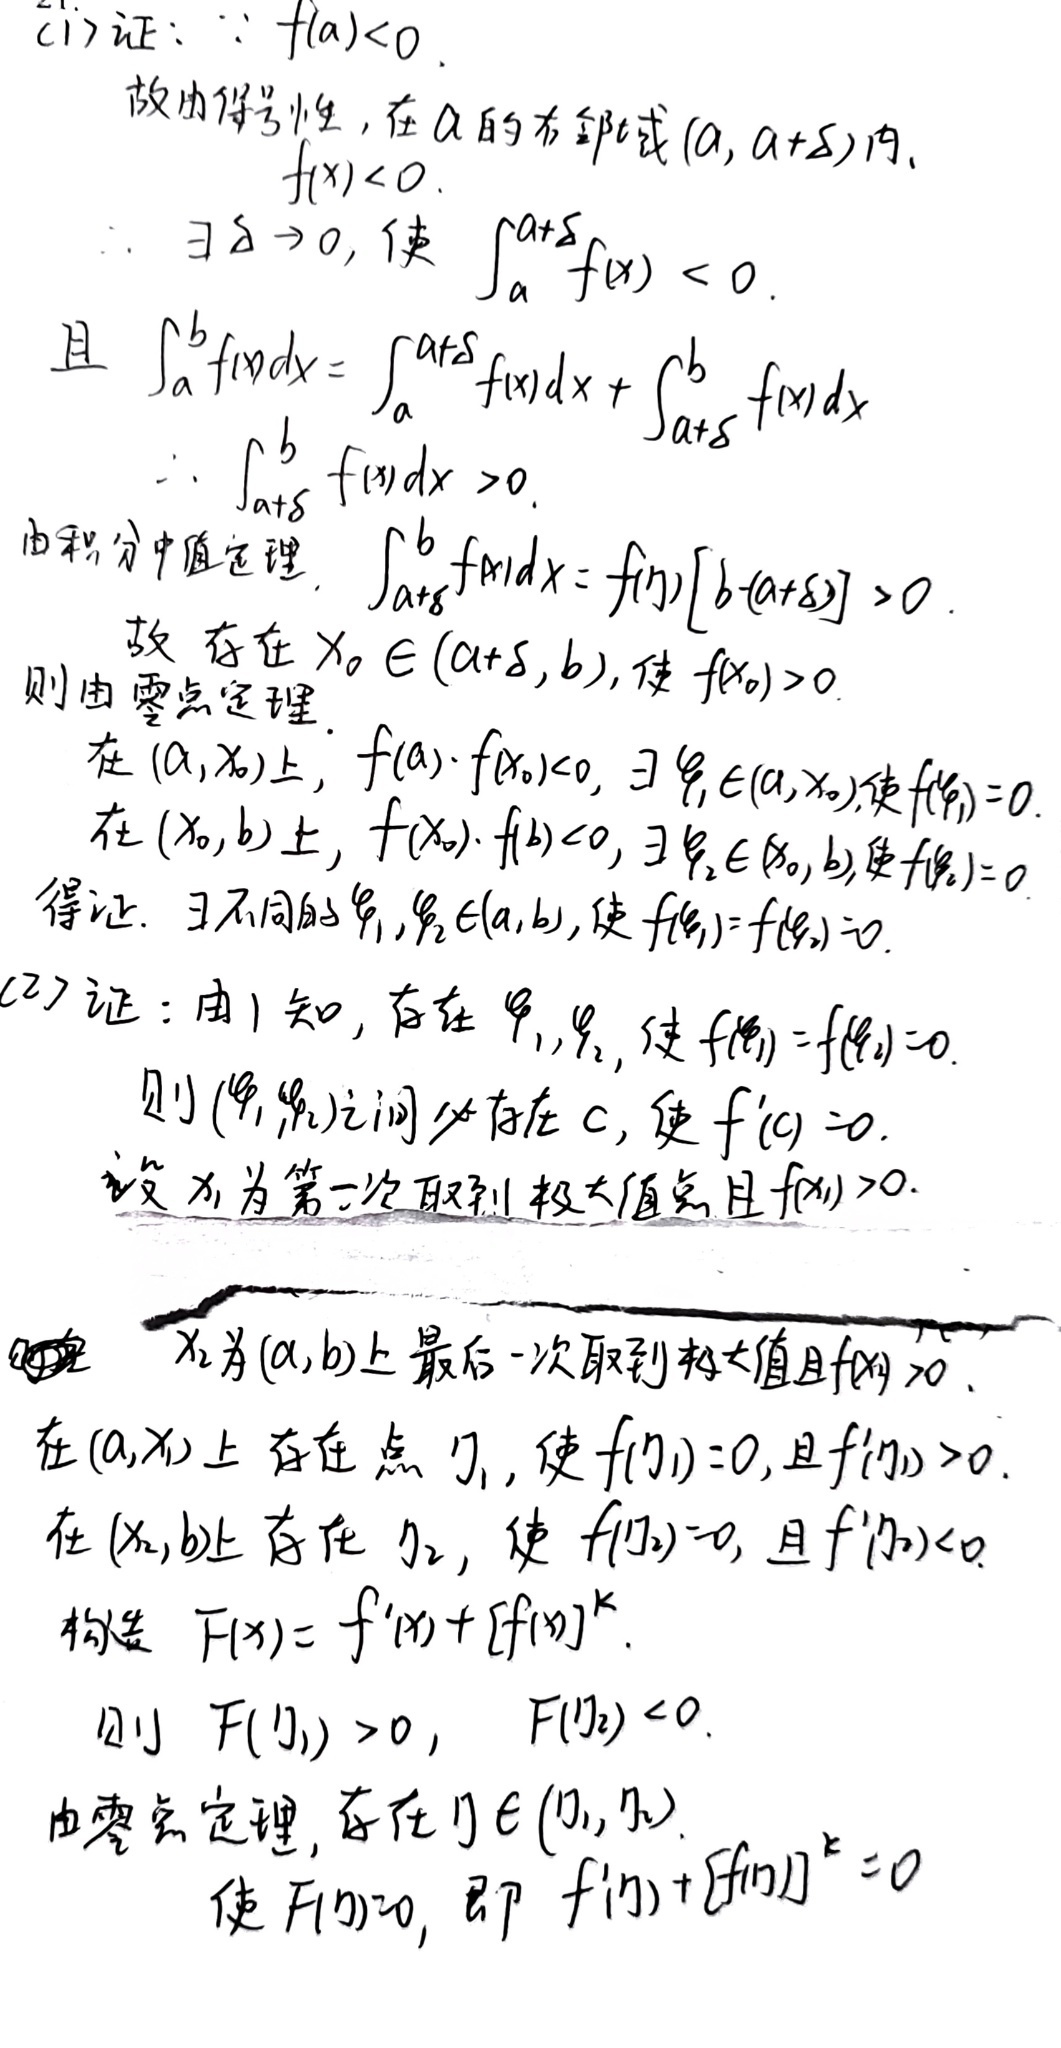 (1) 证: ∵ f(a)<0.
故由保号性, 在a的右邻域(a, a+δ)内,
f(x)<0.
∴ ∃δ→0, 使 ∫_a^{a+δ} f(x) < 0.
且 ∫_a^b f(x)dx = ∫_a^{a+δ} f(x)dx + ∫_{a+δ}^b f(x)dx
∴ ∫_{a+δ}^b f(x)dx >0.
由积分中值定理. ∫_{a+δ}^b f(x)dx = f(η)[b-(a+δ)] >0.
故 存在 x₀∈(a+δ, b), 使 f(x₀)>0.
则由零点定理.
在(a, x₀)上, f(a)·f(x₀)<0, ∃φ₁∈(a, x₀), 使f(φ₁)=0.
在(x₀, b)上, f(x₀)·f(b)<0, ∃φ₂∈(x₀, b), 使f(φ₂)=0.
得证. ∃不同的φ₁, φ₂∈(a, b), 使 f(φ₁)=f(φ₂)=0.
(2) 证: 由1知, 存在 φ₁, φ₂, 使 f(φ₁)=f(φ₂)=0.
则(φ₁, φ₂)之间必存在 c, 使 f'(c)=0.
设 x₁为第一次取到极大值点且f(x₁)>0.
x₂为(a, b)上最后一次取到极大值且f(x)>0.
在(a, x₁)上 存在点 η₁, 使 f(η₁)=0, 且f'(η₁)>0.
在(x₂, b)上 存在 η₂, 使 f(η₂)=0, 且 f'(η₂)<0.
构造 F(x)= f'(x)+[f(x)]^k.
则 F(η₁)>0, F(η₂)<0.
由零点定理, 存在η∈(η₁, η₂).
使 F(η)=0, 即 f'(η)+[f(η)]^k=0